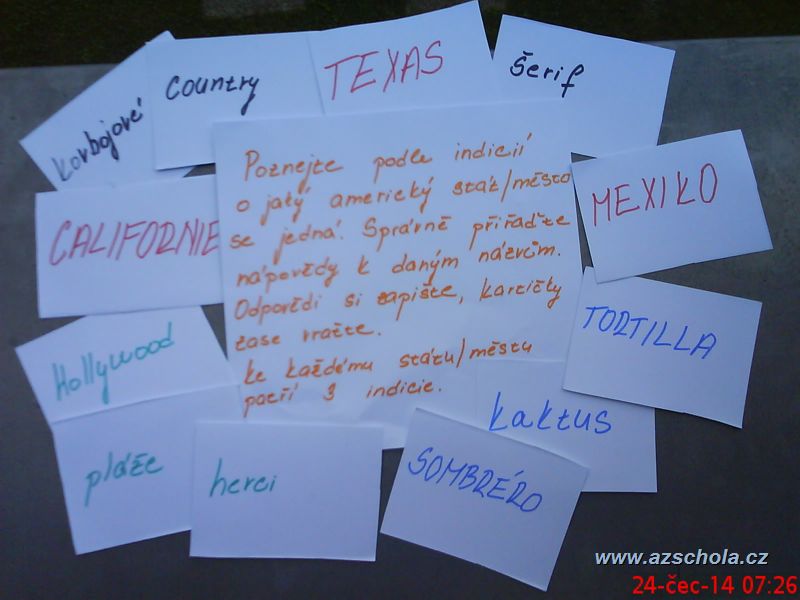 kovbojové
country
TEXAS
šerif
CALIFORNIE
Poznejte podle indicií
o jaký americký stát/město
se jedná. Správně přiřaďte
nápovědy k daným názvům.
Odpovědi si zapište, kartičky
zase vraťte.
Ke každému státu/městu
patří 3 indicie.
MEXIKO
TORTILLA
Hollywood
kaktus
pláže
herci
SOMBRÉRO
www.azschola.cz
24-čec-14 07:26